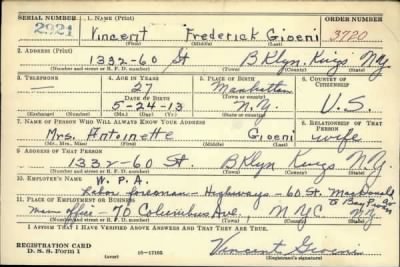 SERIAL NUMBER 1. NAME (Print) ORDER NUMBER
2921 Vincent Frederick Gioeni 3720
(First) (Middle) (Last)
2. ADDRESS (Print)
1332-60 St BKlyn. Kings NY
(Number and street or R. F. D. number) (Town) (County) (State)
3. TELEPHONE 4. AGE IN YEARS 5. PLACE OF BIRTH 6. COUNTRY OF CITIZENSHIP
— 27 Manhattan
DATE OF BIRTH (Town or county)
5-24-13 N.Y. U.S.
(Exchange) (Number) (Mo.) (Day) (Yr.) (State or country)
7. NAME OF PERSON WHO WILL ALWAYS KNOW YOUR ADDRESS 8. RELATIONSHIP OF THAT PERSON
Mrs. Antoinette Gioeni wife
(Mr., Mrs., Miss) (First) (Middle) (Last)
9. ADDRESS OF THAT PERSON
1332-60 St. BKlyn Kings NY
(Number and street or R. F. D. number) (Town) (County) (State)
10. EMPLOYER'S NAME
W. P. A.
Labor foreman - Highways - 60 St. MacDonald
11. PLACE OF EMPLOYMENT OR BUSINESS To Bay
Main office - 70 Columbus Ave., NYC NY
(Number and street or R. F. D. number) (Town) (County) (State)
I AFFIRM THAT I HAVE VERIFIED ABOVE ANSWERS AND THAT THEY ARE TRUE.
REGISTRATION CARD Vincent Gioeni
D. S. S. Form 1 (over) 16-17105 (Registrant's signature)